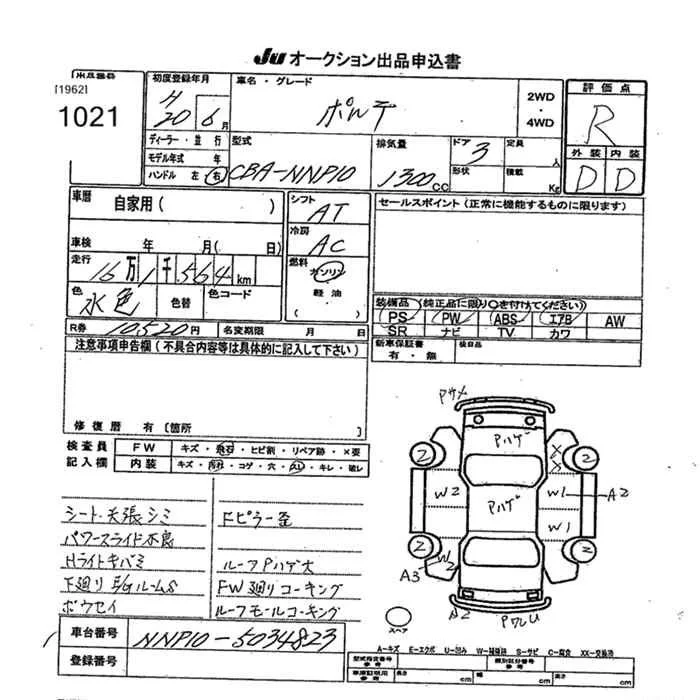 Ju オークション出品申込書
出品番号
[1962]
1021
初度登録年月
H 20 年 6 月
車名・グレード
ポルテ
2WD
・
4WD
評価点
R
外装 内装
D D
ディーラー・並行
モデル年式 年
ハンドル 左 右
型式
CBA-NNP10
排気量
1300 CC
ドア 3
形状
定員 人
積載 Kg
車歴
自家用 ( )
車検 年 月( 日)
走行
16万1千564km
色
水色
色替
色コード
R券 10520円
名変期限 月 日
シフト
AT
冷房
AC
燃料
ガソリン
・
軽油
( )
セールスポイント (正常に機能するものに限ります)
装備品 (純正品に限り○を付けてください)
PS PW ABS エアB AW
SR ナビ TV カワ
新車保証書
有・無
検自品
注意事項申告欄 (不具合内容等は具体的に記入して下さい)
修復歴 有 [箇所
検査員
記入欄
FW キズ・飛石・ヒビ割・リペア跡・×要
内装 キズ・汚れ・コゲ・穴・スレ・キレ・破レ
シート・天張シミ
パワースライド不良
Hライトキバミ
下廻り E/GルームS
ボウセイ
Fピラー歪
ルーフPハゲ大
FW廻りコーキング
ルーフモールコーキング
Pサメ
Pハゲ
2
2
X
X
W2
Pハゲ
W1
A2
W1
2
2
W2
A3
A2
PワレU
スペア
車台番号 NNP10-5034823
登録番号
A-キズ E-エクボ U-凹み W-補修跡 S-サビ C-腐食 XX-交換済
型式指定番号
参考
類別区分番号
参考
車庫証明用
参考
長さ cm 幅 cm 高さ cm